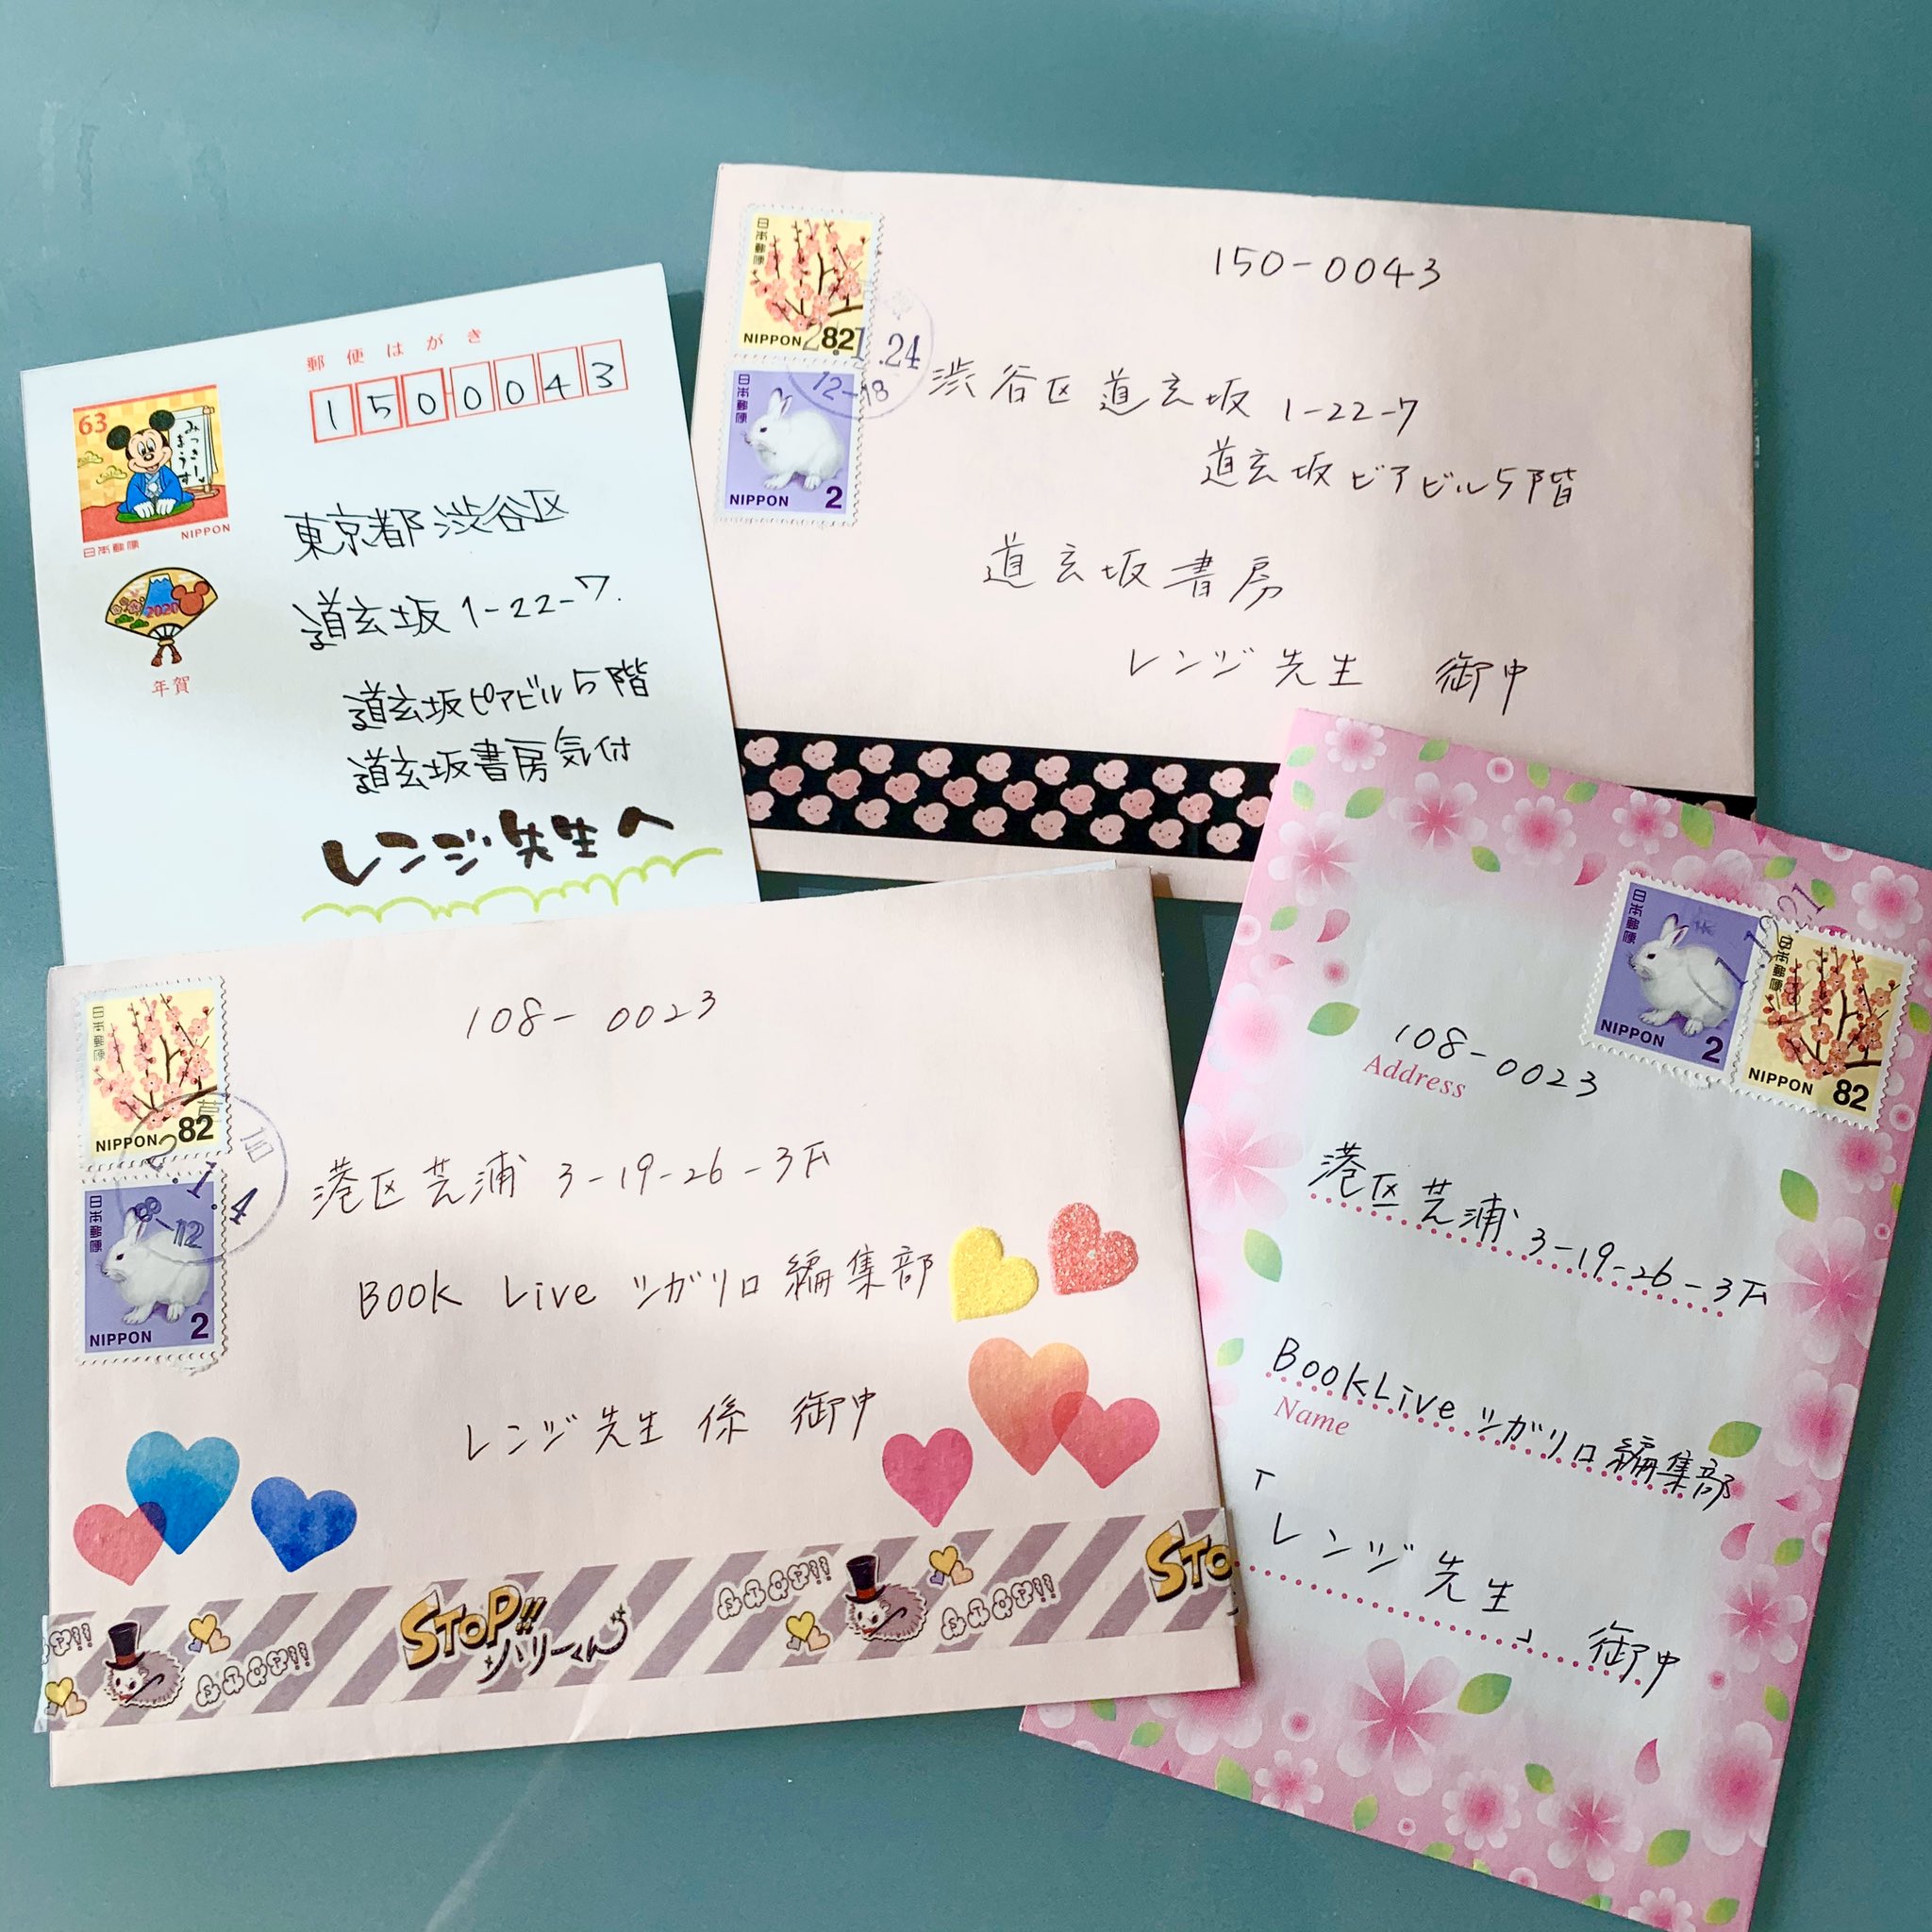 郵便はがき
1500043
63
みっきーまうす
NIPPON
日本郵便
2020
年賀
東京都渋谷区
道玄坂1-22-7
道玄坂ピアビル5階
道玄坂書房気付
レンジ先生へ
日本郵便
NIPPON 82
.24
12-18
日本郵便
NIPPON 2
150-0043
渋谷区道玄坂 1-22-7
道玄坂ピアビル5階
道玄坂書房
レンジ先生 御中
日本郵便
NIPPON 82
日本郵便
NIPPON 2
.1.4
8-12
108-0023
港区芝浦 3-19-26-3F
Book Live ツガリロ編集部
レンジ先生係 御中
STOP!!
ハリーくん
STO
日本郵便
NIPPON 2
日本郵便
NIPPON 82
108-0023
Address
港区芝浦3-19-26-3F
BookLive ツガリロ編集部
Name
「レンジ先生」御中